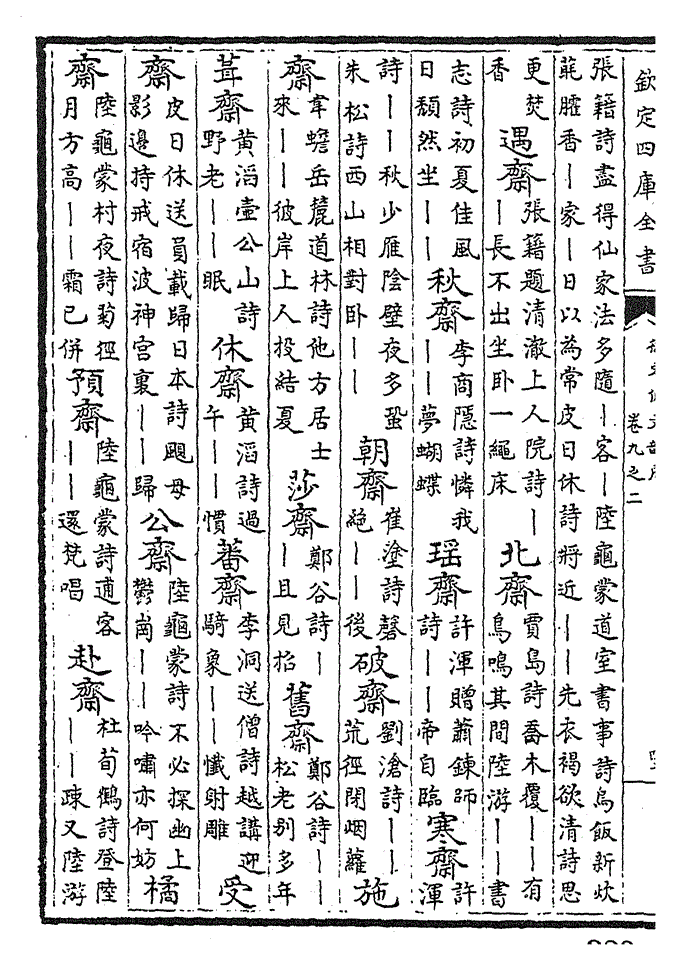 欽定四庫全書
卷九之二
張籍詩盡得仙家法多隨丨客丨陸龜蒙道室書事詩烏飯新炊芼臛香丨家丨日以為常皮日休詩將近丨丨先衣褐欲清詩思
更焚香 遇齋 張籍題清澈上人院詩丨丨長不出坐卧一繩床 北齋 賈島詩喬木覆丨丨有鳥鳴其間陸游丨丨書
志詩初夏佳風日頹然坐丨丨 秋齋 李商隱詩憐我丨丨夢蝴蝶 瑶齋 許渾贈蕭鍊師詩丨丨帝自臨 寒齋 許渾
詩丨丨秋少雁陰壁夜多蛩朱松詩西山相對卧丨丨 朝齋 崔塗詩磬絶丨丨後 破齋 劉滄詩丨丨荒徑閉烟蘿 施
齋 韋蟾岳麓道林詩他方居士來丨丨彼岸上人投結夏 莎齋 鄭谷詩丨丨且見招 舊齋 鄭谷詩丨丨松老别多年
葺齋 黄滔壺公山詩野老丨丨眠 休齋 黄滔詩過午丨丨慣 蕃齋 李洞送僧詩越講迎騎象丨丨懺射雕 受
齋 皮日休送員載歸日本詩颶母影邊持戒宿波神宮裏丨丨歸 公齋 陸龜蒙詩不必探幽上鬱崗丨丨吟嘯亦何妨 橘
齋 陸龜蒙村夜詩菊徑月方高丨丨霜已併 預齋 陸龜蒙詩逋客丨丨還梵唱 赴齋 杜荀鶴詩登陸丨丨疎又陸游